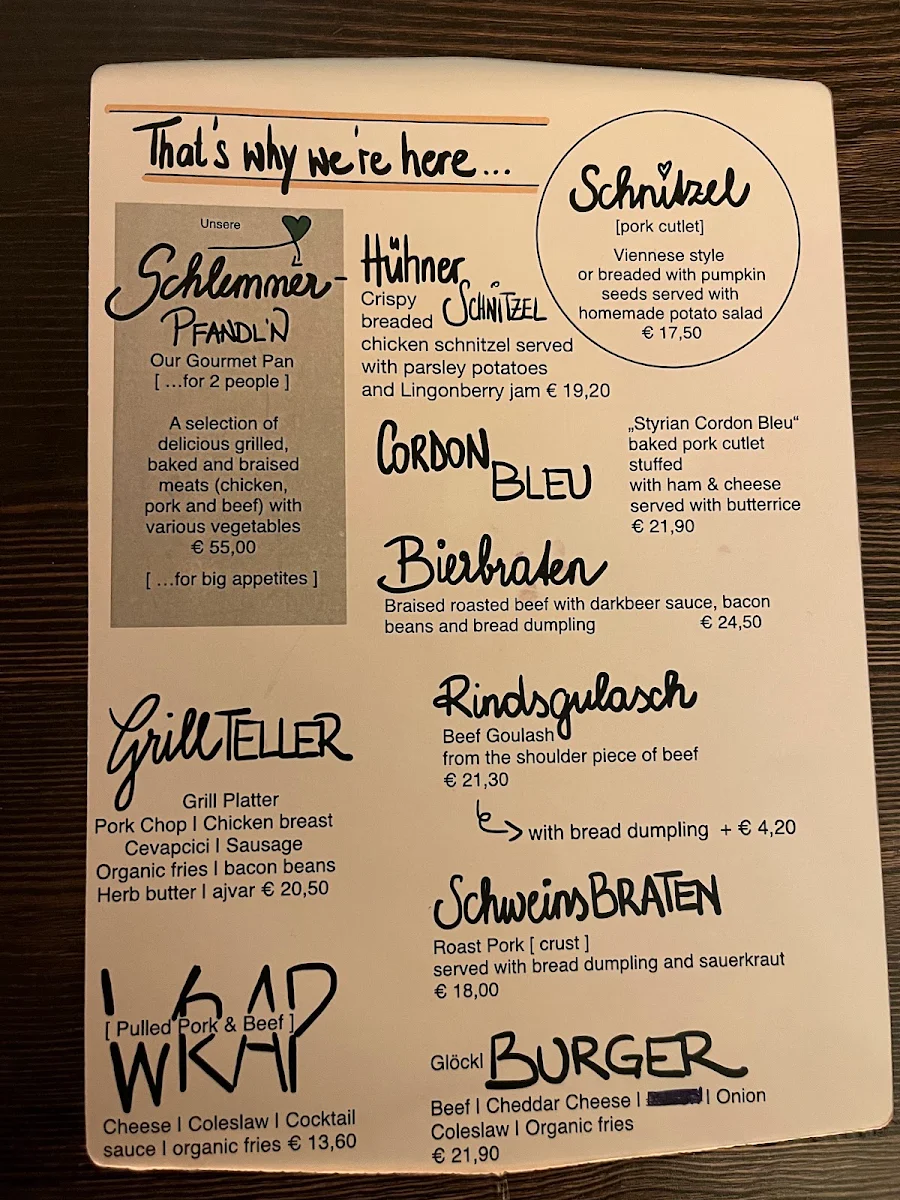 That's why we're here...
Schnitzel
[pork cutlet]
Viennese style
or breaded with pumpkin
seeds served with
homemade potato salad
€ 17,50
Unsere
Schlemmer-
PFANDL'N
Our Gourmet Pan
[ ...for 2 people ]
A selection of
delicious grilled,
baked and braised
meats (chicken,
pork and beef) with
various vegetables
€ 55,00
[ ...for big appetites ]
Hühner
SCHNITZEL
Crispy
breaded
chicken schnitzel served
with parsley potatoes
and Lingonberry jam € 19,20
CORDON
BLEU
„Styrian Cordon Bleu“
baked pork cutlet
stuffed
with ham & cheese
served with butterrice
€ 21,90
Bierbraten
Braised roasted beef with darkbeer sauce, bacon
beans and bread dumpling € 24,50
GrillTELLER
Grill Platter
Pork Chop I Chicken breast
Cevapcici I Sausage
Organic fries I bacon beans
Herb butter I ajvar € 20,50
Rindsgulasch
Beef Goulash
from the shoulder piece of beef
€ 21,30
with bread dumpling + € 4,20
SchweinsBRATEN
Roast Pork [ crust ]
served with bread dumpling and sauerkraut
€ 18,00
WRAP
[ Pulled Pork & Beef ]
Cheese I Coleslaw I Cocktail
sauce I organic fries € 13,60
Glöckl BURGER
Beef I Cheddar Cheese I I Onion
Coleslaw I Organic fries
€ 21,90